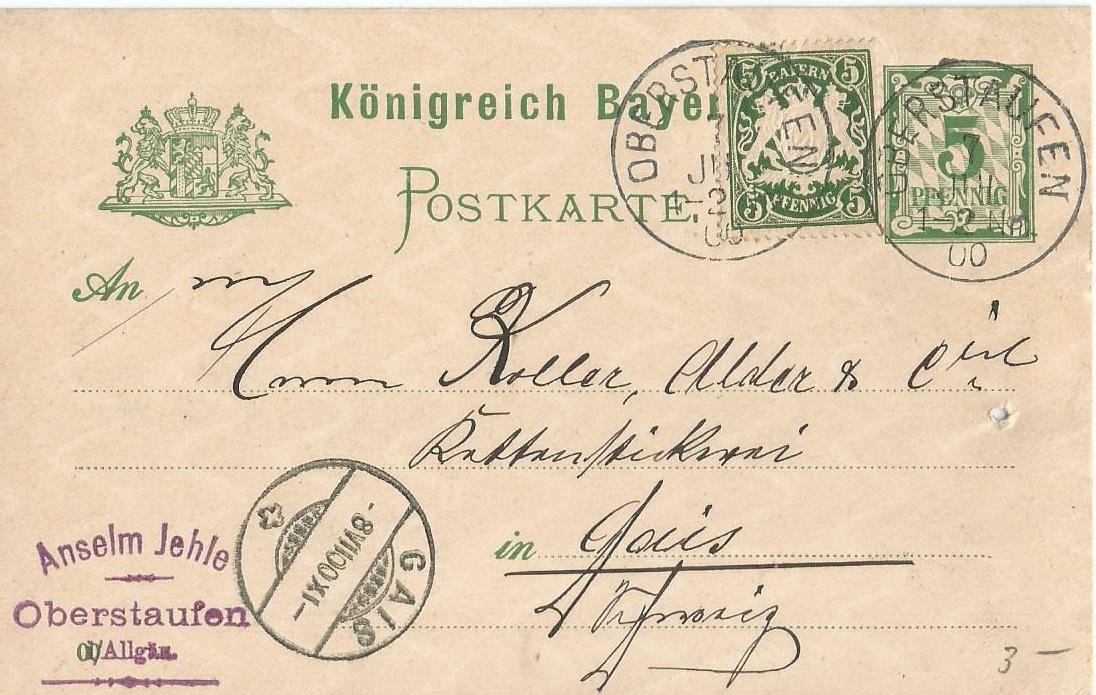 Königreich Bayer
POSTKARTE
OBERSTAUFEN
7
JU
1-2
00
5 BAYERN 5
5 PFENNIG 5
OBERSTAUFEN
7
JUL
1-2 NM
00
5
PFENNIG
An
Herren Koller, Alder & Cie
Kettenstickerei
in Gais
Schweiz
GAIS
-8 VII.00 XI-
Anselm Jehle
Oberstaufen
i/Allgäu.
3 –